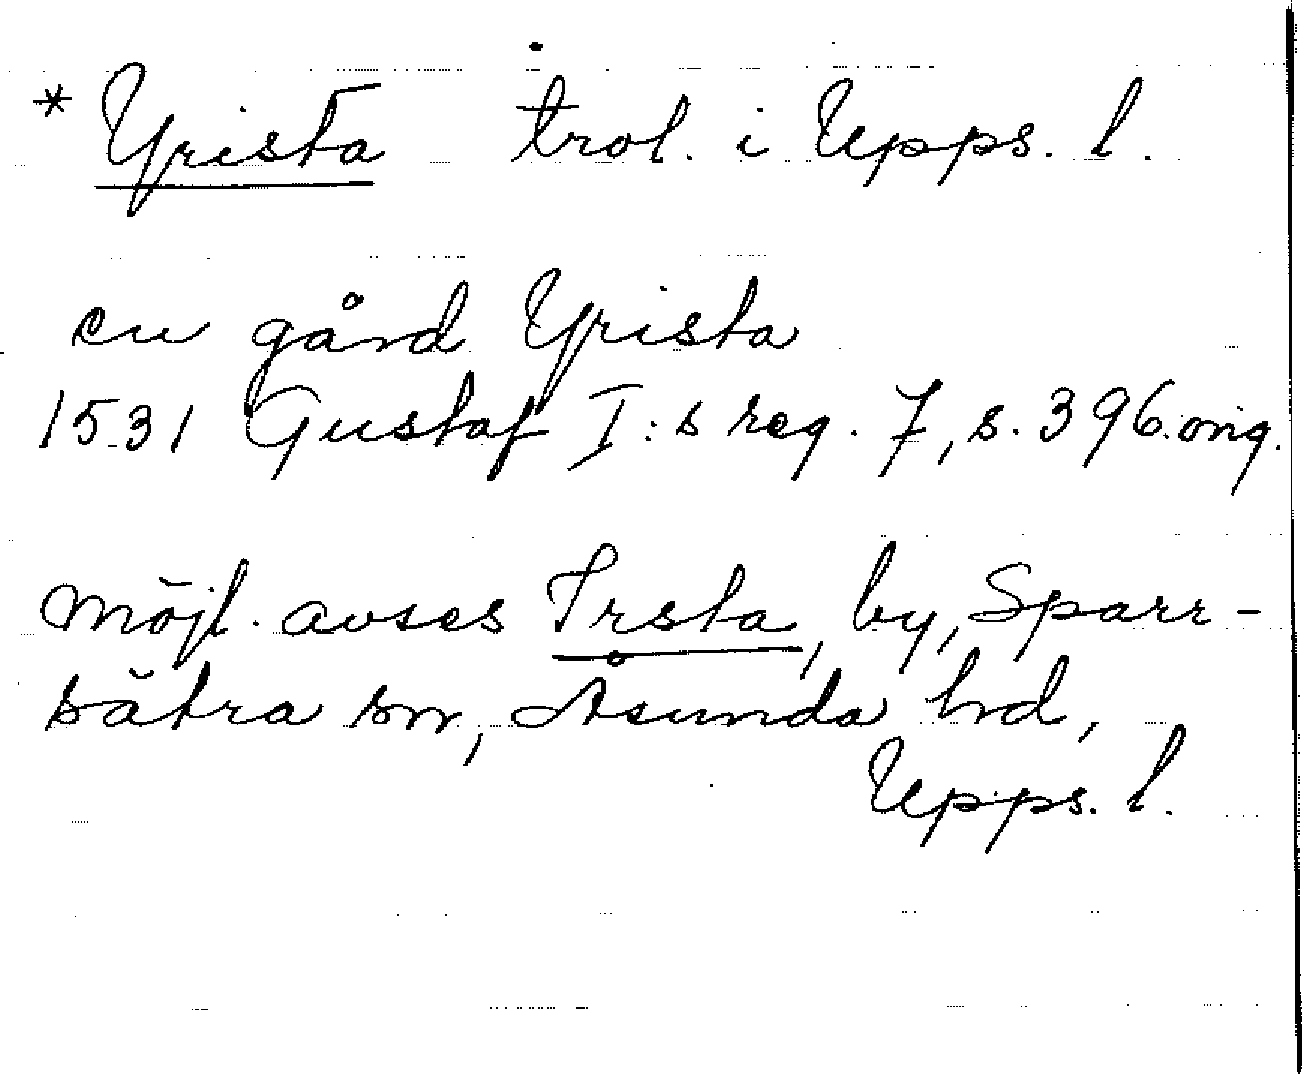 * Yrista trol. i Upps. l.
en gård Yrista
1531 Gustaf I:s reg. 7, s. 396. orig.
möjl. avses Irsta, by, Sparr-
sätra sn, Åsunda hd,
Upps. l.